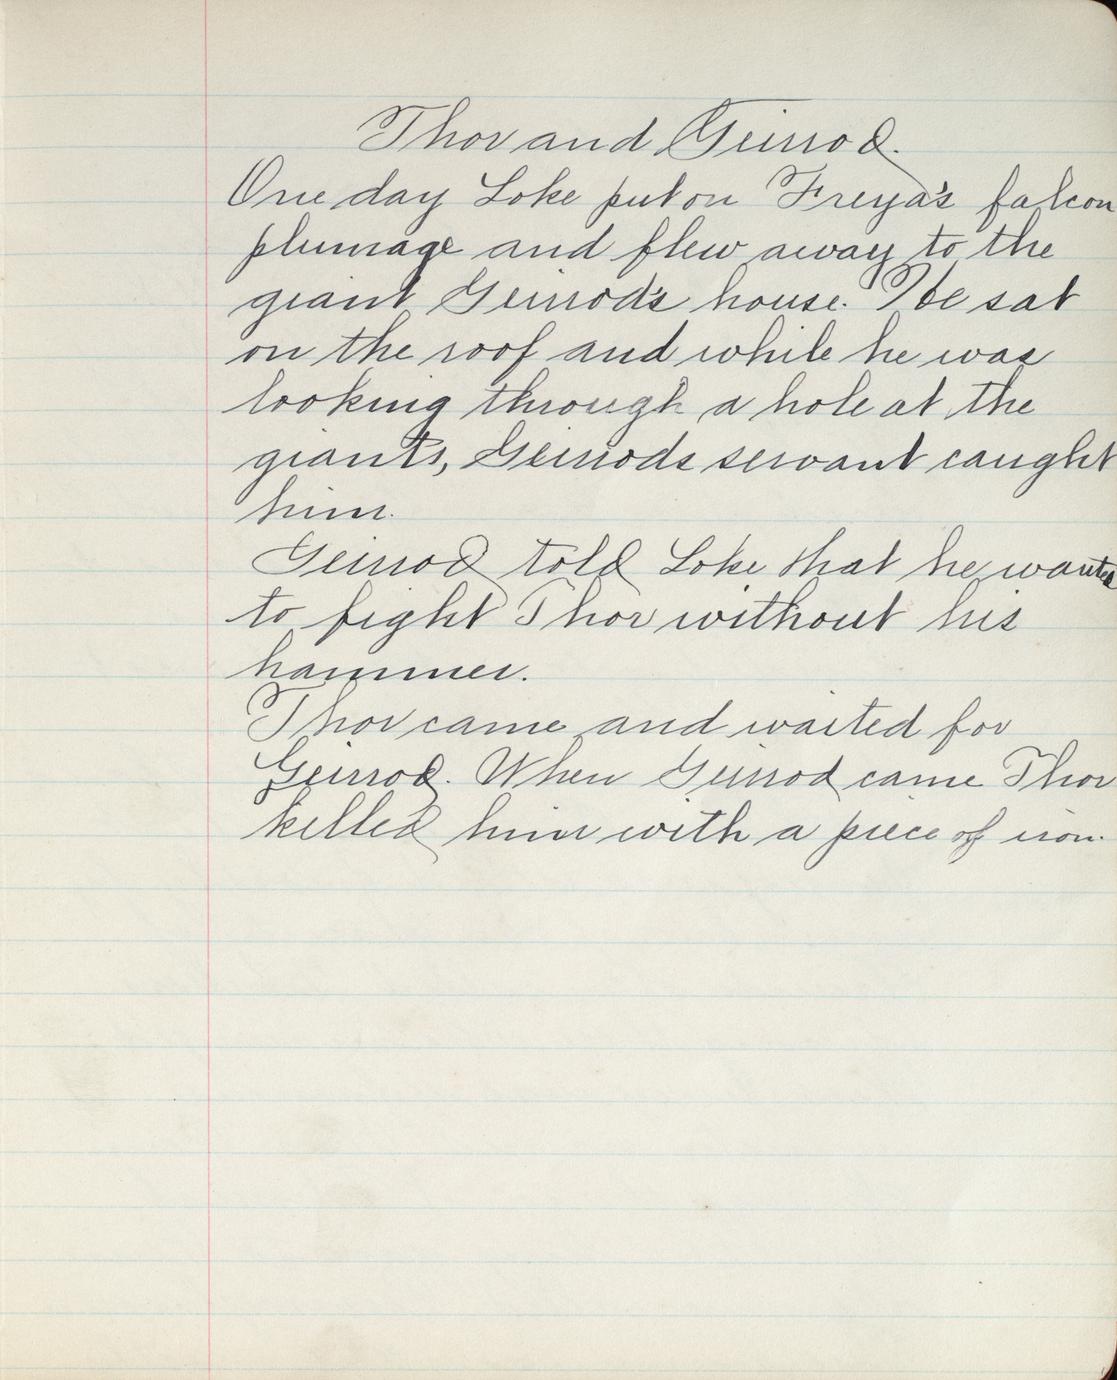 Thor and Geirrod.
One day Loke put on Freya's falcon
plumage and flew away to the
giant Geirrod's house. He sat
on the roof and while he was
looking through a hole at the
giants, Geirrods servant caught
him.
Geirrod told Loke that he wanted
to fight Thor without his
hammer.
Thor came and waited for
Geirrod. When Geirrod came Thor
killed him with a piece of iron.